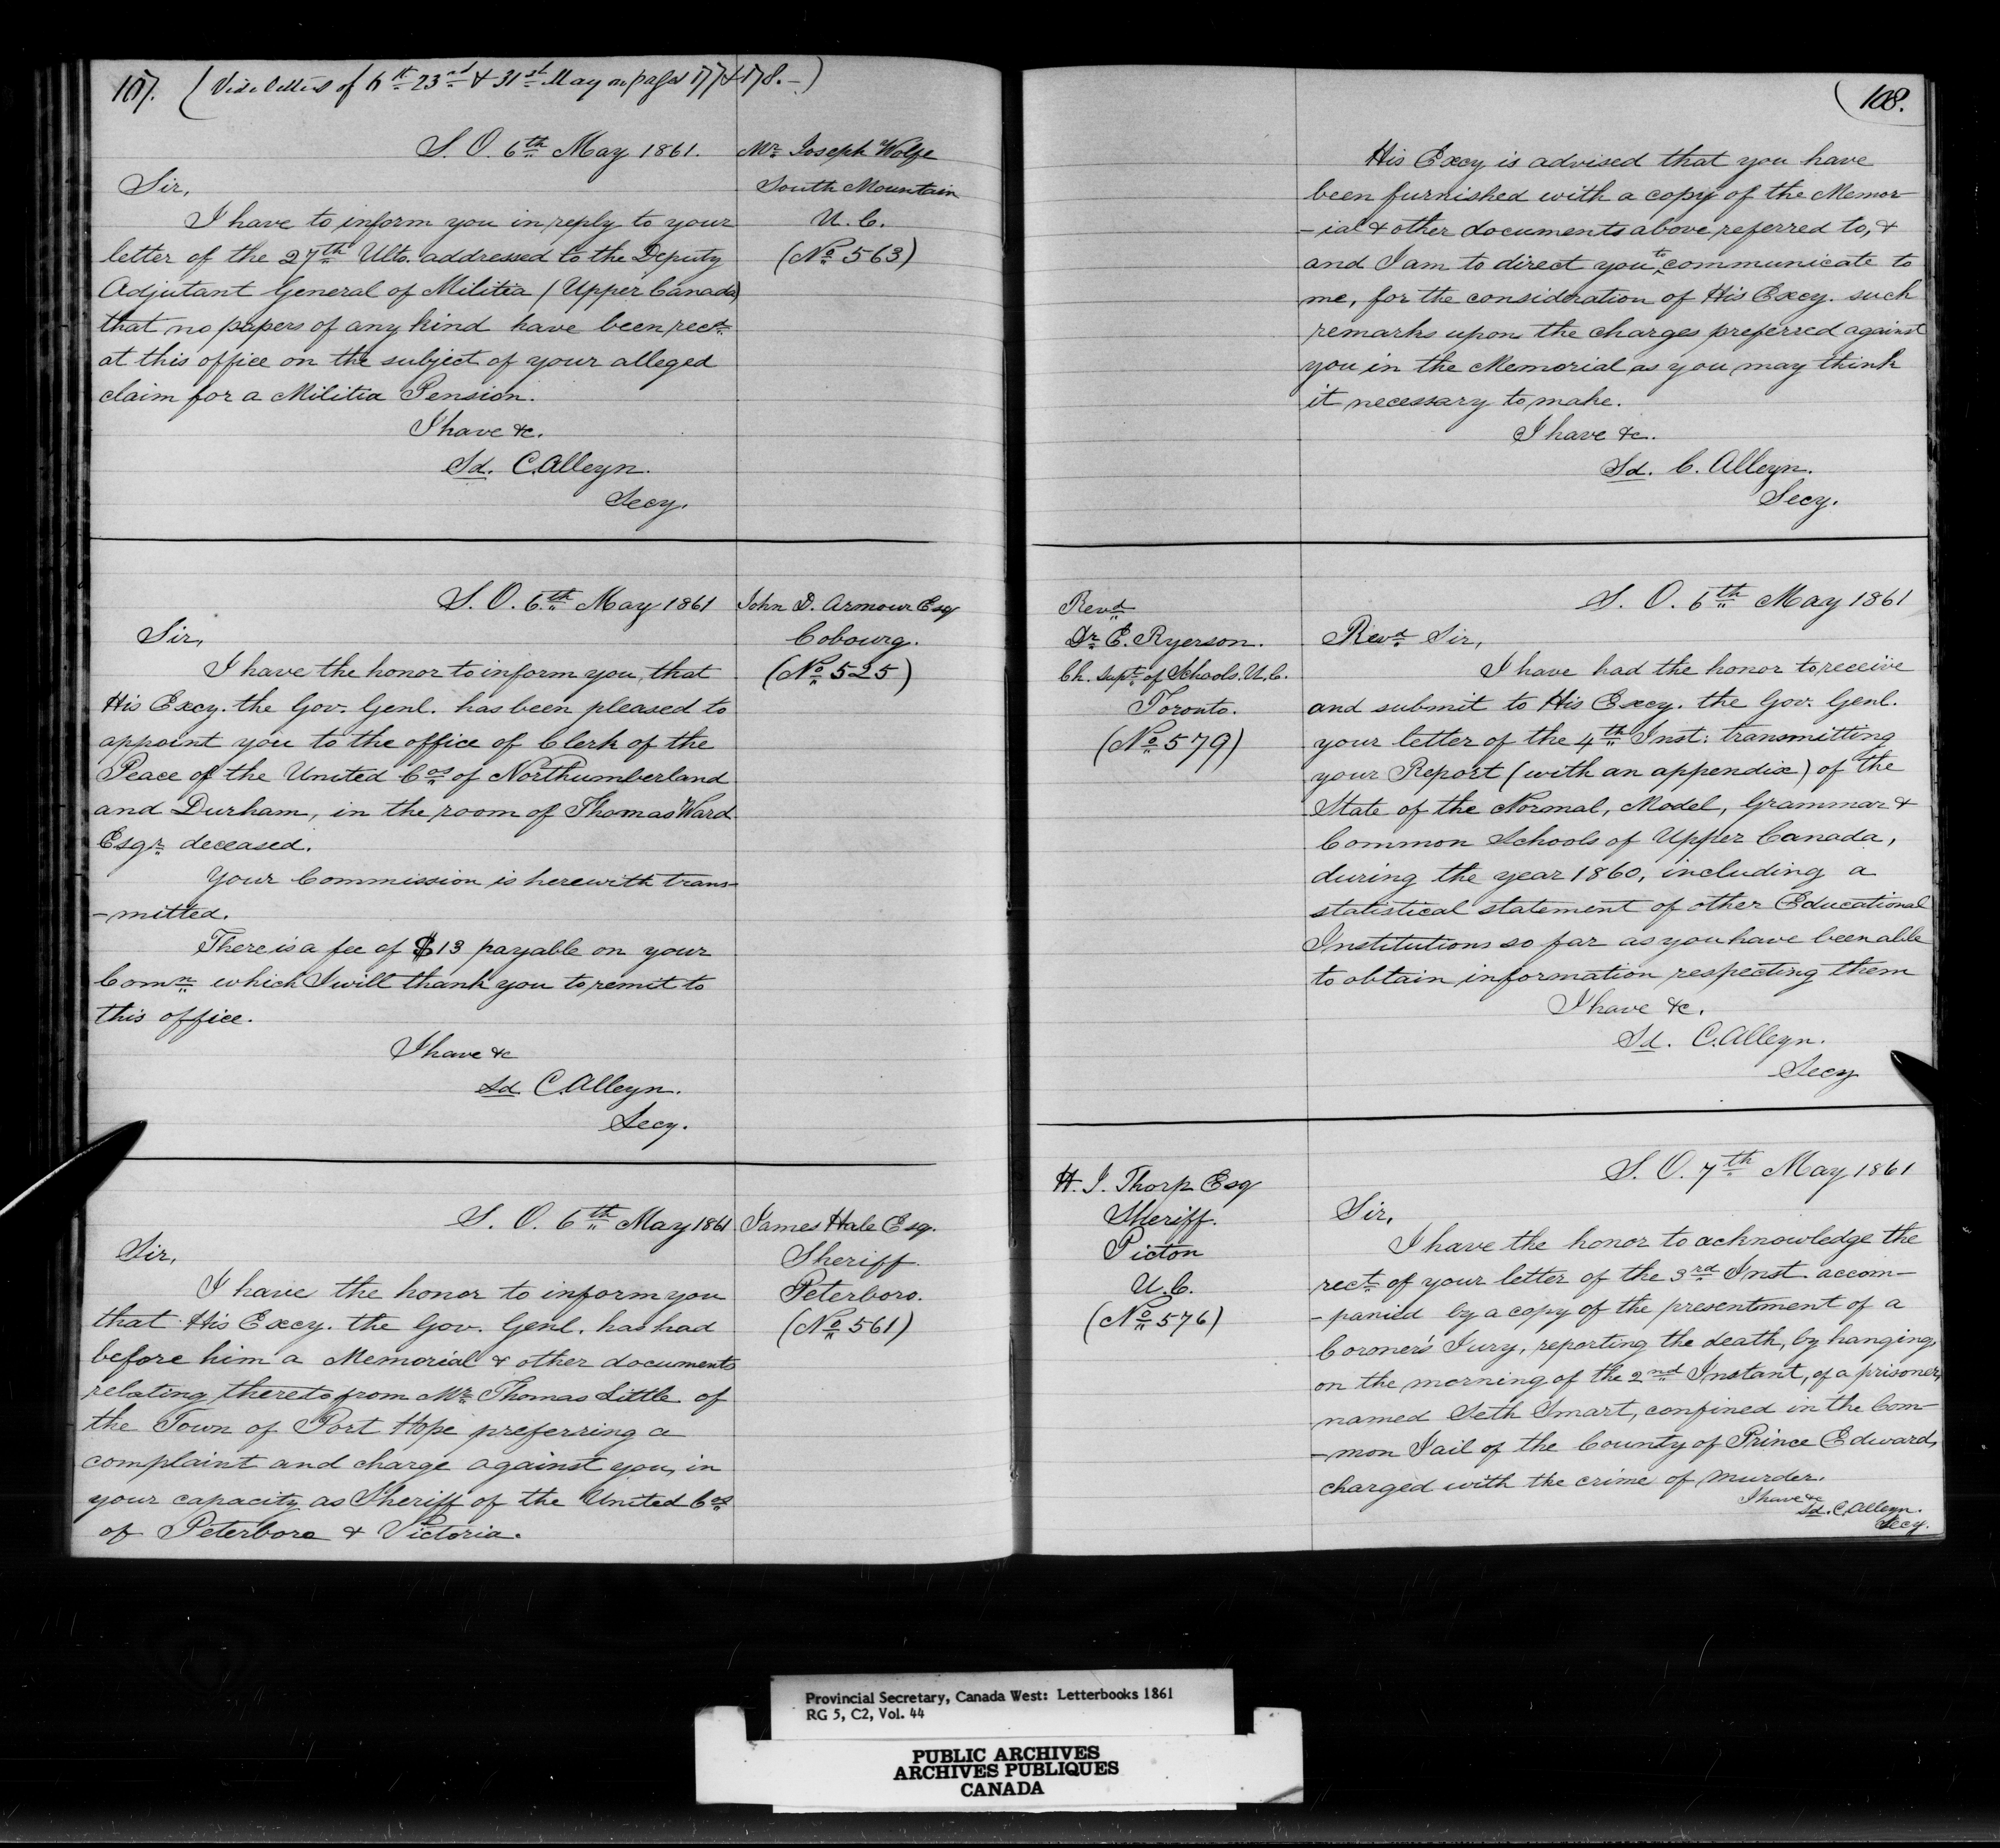 107. (Vide letters of 6th 23rd & 31st May on pages 177 & 178.–)
S. O. 6th May 1861.
Mr. Joseph Wolfe
South Mountain
U. C.
(No 563)
Sir,
I have to inform you in reply to your
letter of the 27th Ulto. addressed to the Deputy
Adjutant General of Militia (Upper Canada)
that no papers of any kind have been rect.
at this office on the subject of your alleged
claim for a Militia Pension.
I have &c.
Sd. C. Alleyn.
Secy.
S. O. 6th May 1861
John D. Armour Esq
Cobourg.
(No 525)
Sir,
I have the honor to inform you, that
His Excy. the Gov. Genl. has been pleased to
appoint you to the office of Clerk of the
Peace of the United Cos of Northumberland
and Durham, in the room of Thomas Ward
Esqr. deceased.
Your Commission is herewith trans-
-mitted.
There is a fee of $13 payable on your
Comn which I will thank you to remit to
this office.
I have &c
Sd C. Alleyn.
Secy.
S. O. 6th May 1861
James Hale Esq.
Sheriff.
Peterboro.
(No 561)
Sir,
I have the honor to inform you
that His Excy. the Gov. Genl. has had
before him a Memorial & other documents
relating thereto from Mr. Thomas Little of
the Town of Port Hope preferring a
complaint and charge against you, in
your capacity as Sheriff of the United Cos
of Peterboro & Victoria.
108.
His Excy is advised that you have
been furnished with a copy of the Memor-
-ial & other documents above referred to, &
and I am to direct you to communicate to
me, for the consideration of His Excy. such
remarks upon the charges preferred against
you in the Memorial as you may think
it necessary to make.
I have &c.
Sd. C. Alleyn.
Secy.
Revd
Dr. E. Ryerson.
Ch. Supt. of Schools. U.C.
Toronto.
(No 579)
S. O. 6th May 1861
Revd Sir,
I have had the honor to receive
and submit to His Excy. the Gov. Genl.
your letter of the 4th Inst: transmitting
your Report (with an appendix) of the
State of the Normal, Model, Grammar &
Common Schools of Upper Canada,
during the year 1860, including a
statistical statement of other Educational
Institutions so far as you have been able
to obtain information respecting them
I have &c.
Sd. C. Alleyn.
Secy
H. J. Thorp Esq
Sheriff.
Picton
U. C.
(No 576)
S. O. 7th May 1861
Sir,
I have the honor to acknowledge the
rect. of your letter of the 3rd Inst. accom-
-panied by a copy of the presentment of a
Coroner's Jury, reporting the death, by hanging,
on the morning of the 2nd Instant, of a prisoner,
named Seth Smart, confined in the Com-
-mon Jail of the County of Prince Edward,
charged with the crime of murder.
I have &c
Sd. C. Alleyn.
Secy.
Provincial Secretary, Canada West: Letterbooks 1861
RG 5, C2, Vol. 44
PUBLIC ARCHIVES
ARCHIVES PUBLIQUES
CANADA